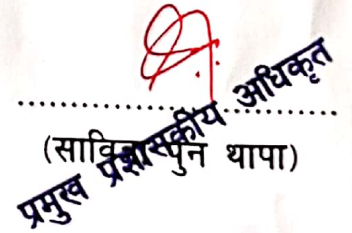 ....................................................
(सावित्रा पुन थापा)
प्रमुख प्रशासकीय अधिकृत